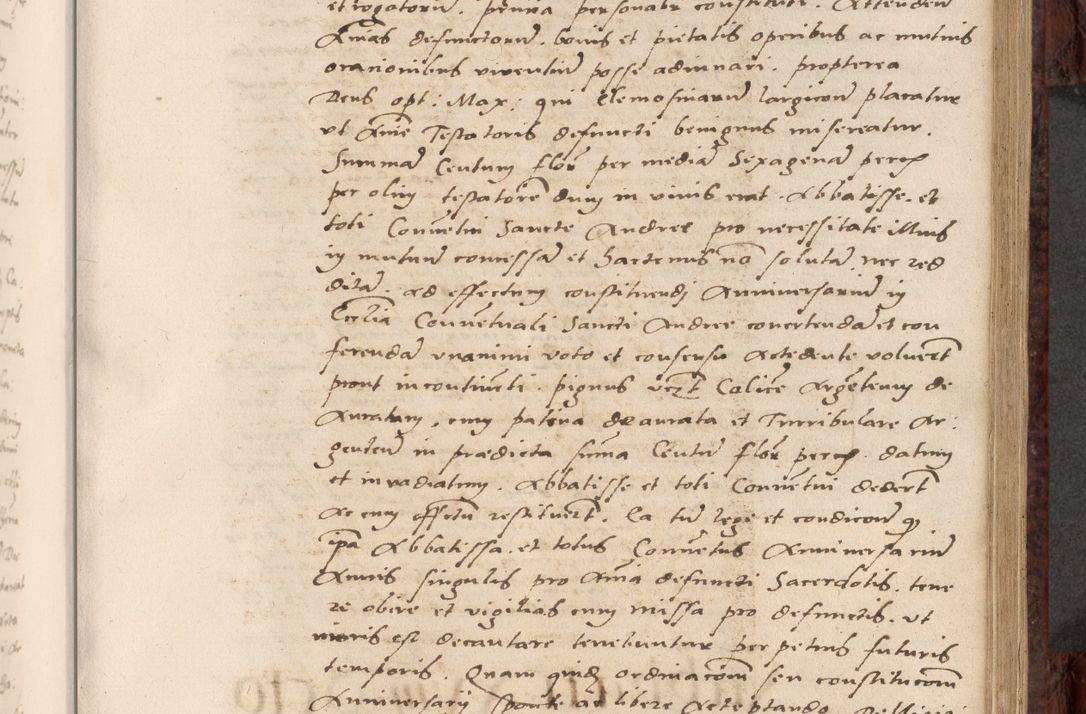 et rogatorum. penma personalr constituti. Attenden
Animas defunctorum. bonis et pietatis operibus ac mutuis
oracionibus viventium posse adiuuari. propterea
Deus opt: Max: qui elemosinarum largicone placatur
vt Anime Testatoris defuncti benignus misereatur.
Summam Centum flor per mediam Sexagenam
per olim testatorem dum in viuis erat. Abbatisse. et
toti Conuentui Sancte Andree pro necessitate illius
in mutuum concessam et hactenus non solutam nec red
ditam. ad effectum constituendj Anniuersarium in
Ecclia Conuentuali Sancti Andree conuertendam et con
ferendam vnanimi voto et consensu Accedente voluerunt
prout incontinenti. pignus vczt Calicem Argenteum de
Auratum, cum patena deaurata et Turribulare Ar:
genteum in praedicta summa Centum flor datum
et inuadiatum. Abbatisse et toti Conuentui dederunt
ac cum effectu restituerunt. Ea tum lege et condicone
ipa Abbatissa. et totus Conuentus Anniuersarium
Annis singulis pro Anima defuncti Sacerdotis. tene
re obire et vigilias cum missa pro defunctis. vt
moris est decantare tenebuntur perpetuis futuris
temporis. Quam quidem ordinacionem seu constitucionem
Anniuersarij sponte ac libere Acceptando